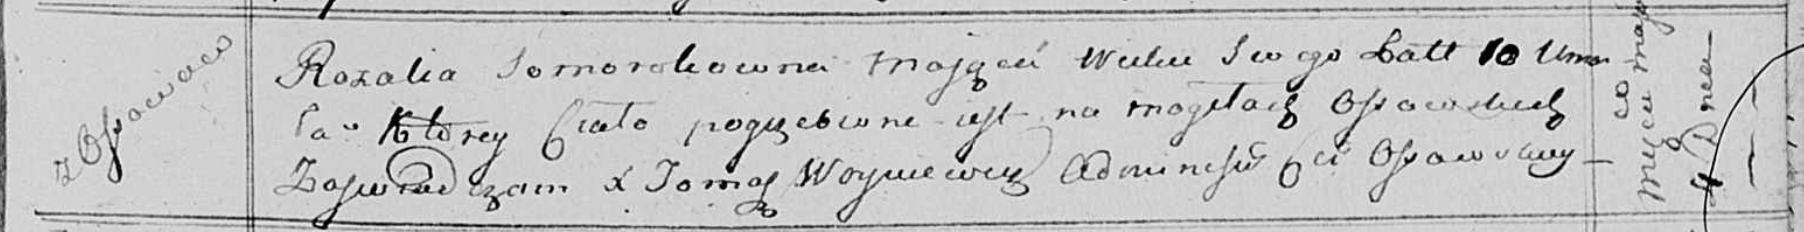 z Ossowa
Rozalia Somorokowna mająca wieku Swego Latt 10 Umar
ła Ktorey Ciało pogrzebione iest na mogiłach Ossowskich
Zaswiadczam X Tomasz Woyniewicz Administr Cer Ossowskiey
mcu maja
4 Dnia